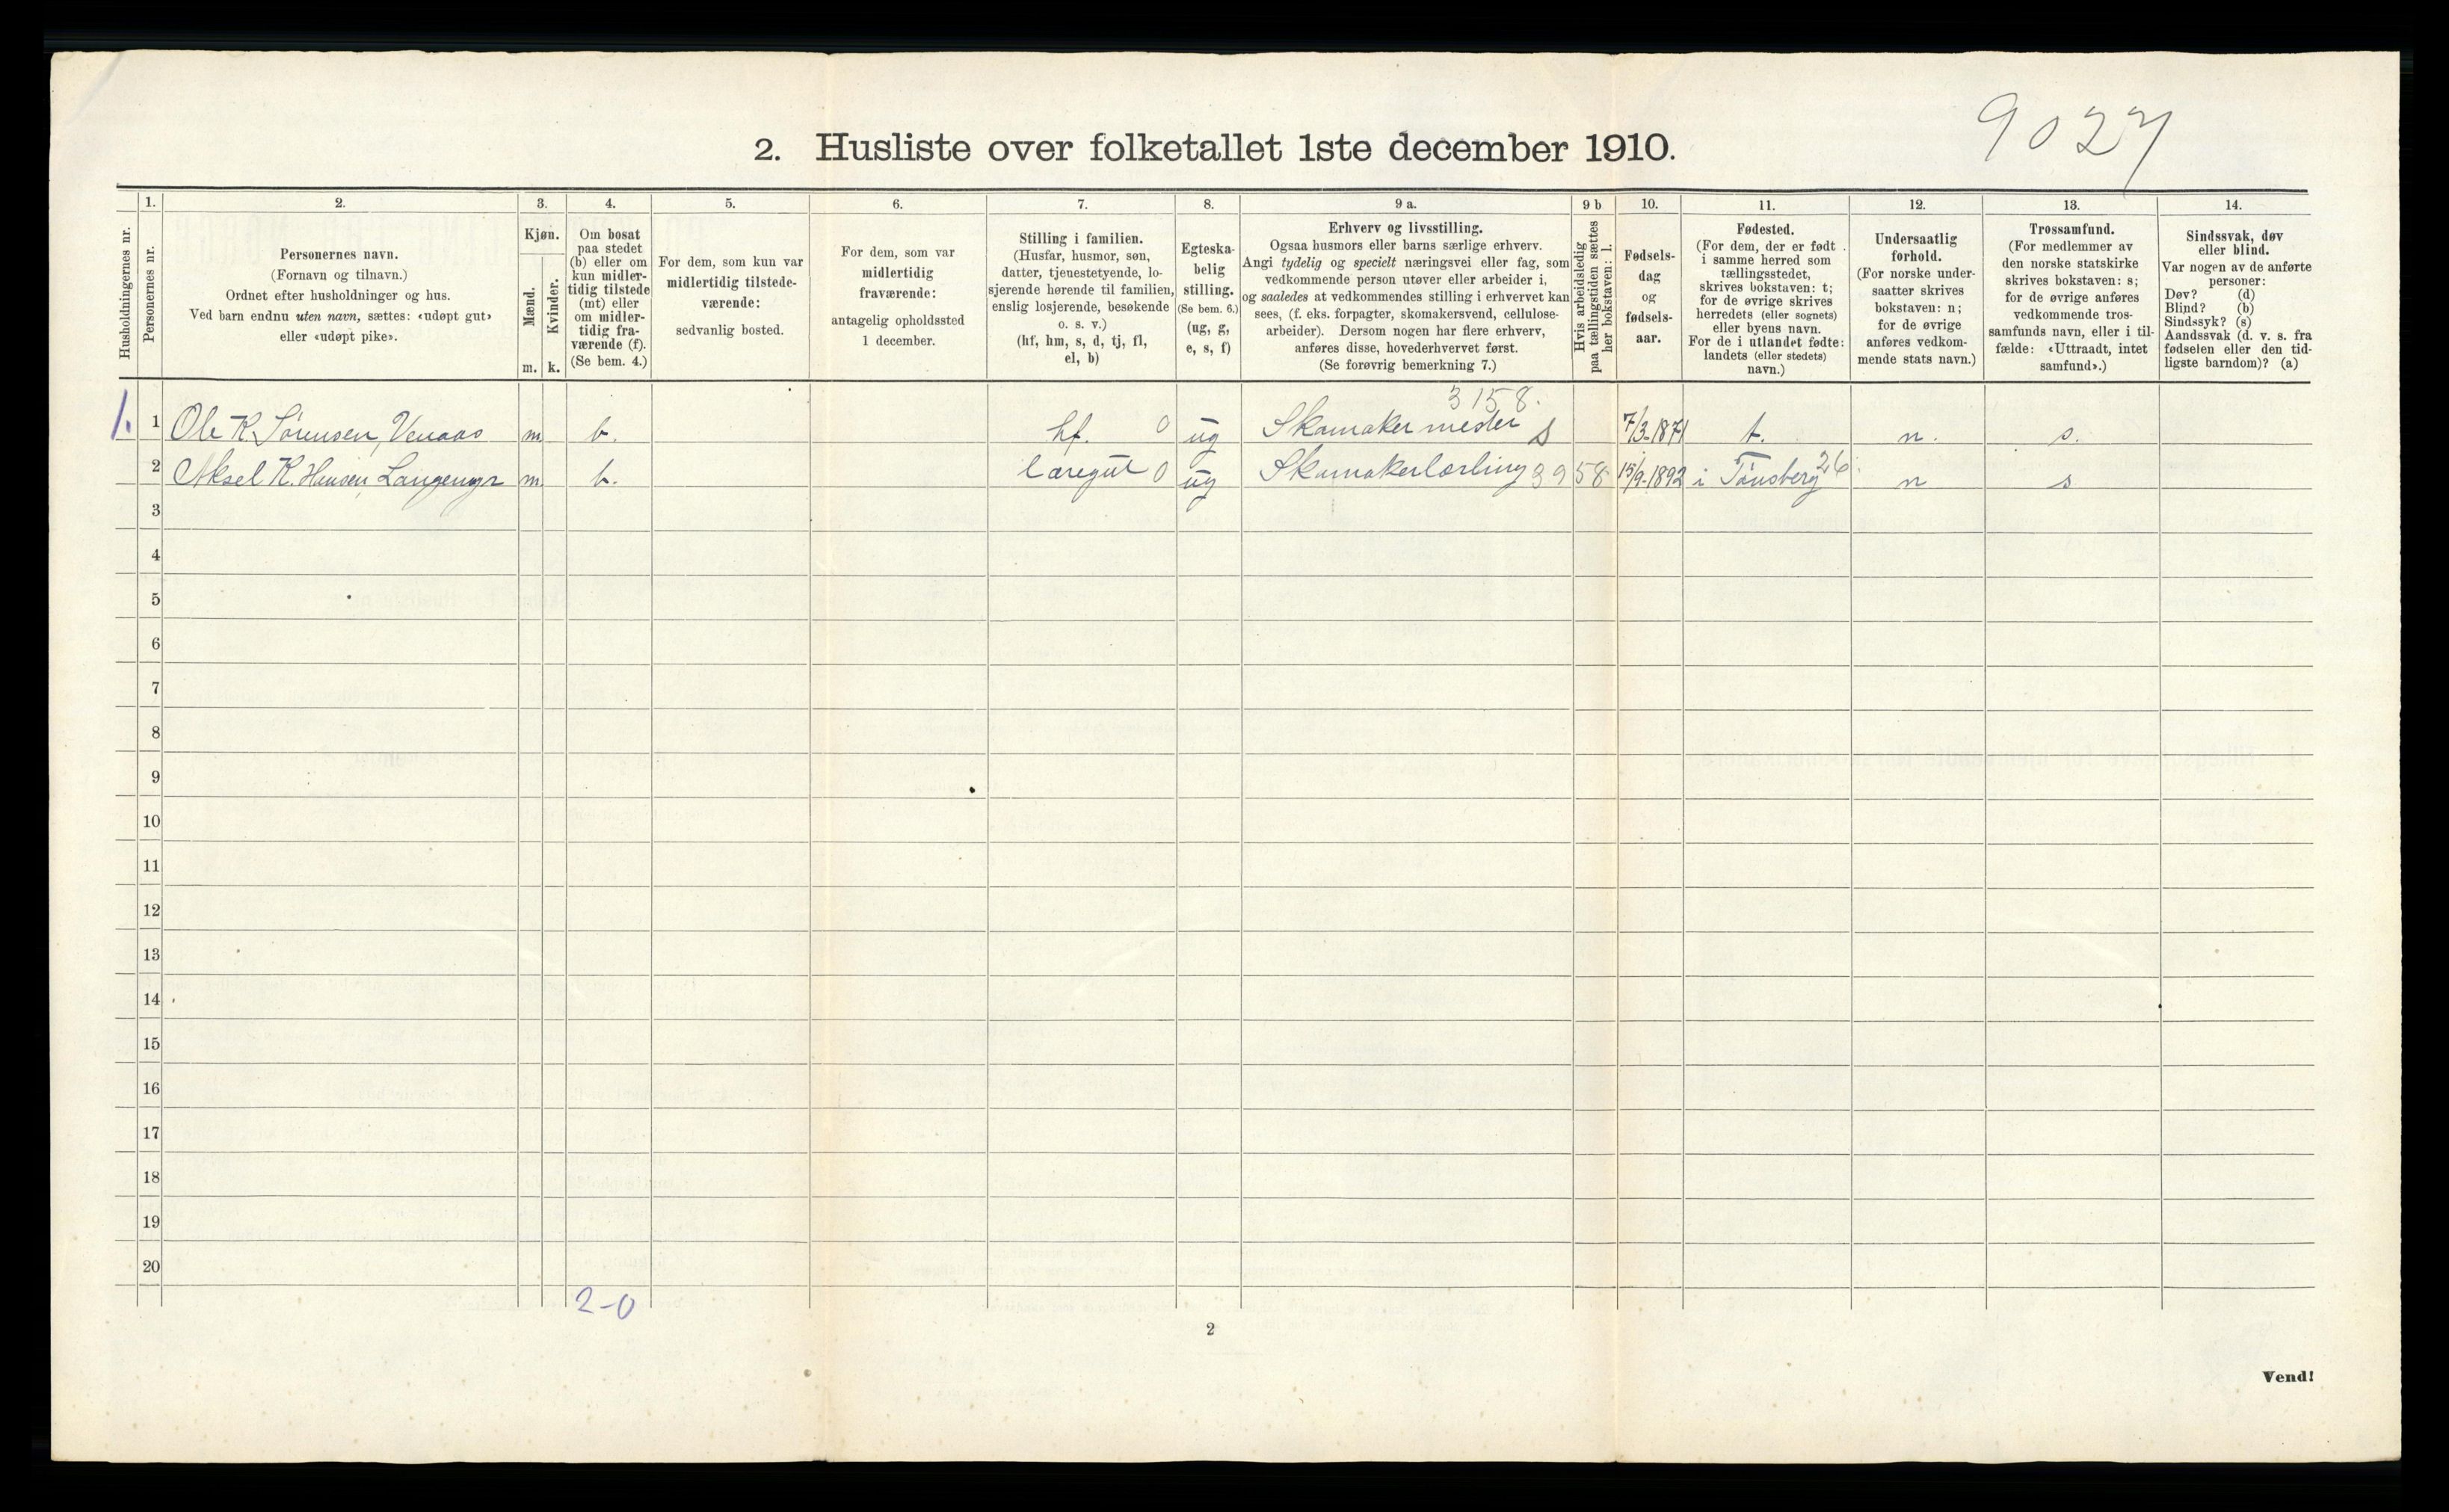 9027
2. Husliste over folketallet 1ste december 1910.
Husholdningernes nr.
1.
Personernes nr.
2.
Personernes navn.
(Fornavn og tilnavn.)
Ordnet efter husholdninger og hus.
Ved barn endnu uten navn, sættes: «udøpt gut»
eller «udøpt pike».
3.
Kjøn.
Mænd.
Kvinder.
m. k.
4.
Om bosat
paa stedet
(b) eller om
kun midler-
tidig tilstede
(mt) eller
om midler-
tidig fra-
værende (f).
(Se bem. 4.)
5.
For dem, som kun var
midlertidig tilstede-
værende:
sedvanlig bosted.
6.
For dem, som var
midlertidig
fraværende:
antagelig opholdssted
1 december.
7.
Stilling i familien.
(Husfar, husmor, søn,
datter, tjenestetyende, lo-
sjerende hørende til familien,
enslig losjerende, besøkende
o. s. v.)
(hf, hm, s, d, tj, fl,
el, b)
8.
Egteska-
belig
stilling.
(Se bem. 6.)
(ug, g,
e, s, f)
9 a.
Erhverv og livsstilling.
Ogsaa husmors eller barns særlige erhverv.
Angi tydelig og specielt næringsvei eller fag, som
vedkommende person utøver eller arbeider i,
og saaledes at vedkommendes stilling i erhvervet kan
sees, (f. eks. forpagter, skomakersvend, cellulose-
arbeider). Dersom nogen har flere erhverv,
anføres disse, hovederhvervet først.
(Se forøvrig bemerkning 7.)
9 b
Hvis arbeidsledig
paa tællingstiden sættes
her bokstaven: l.
10.
Fødsels-
dag
og
fødsels-
aar.
11.
Fødested.
(For dem, der er født
i samme herred som
tællingsstedet,
skrives bokstaven: t;
for de øvrige skrives
herredets (eller sognets)
eller byens navn.
For de i utlandet fødte:
landets (eller stedets)
navn.)
12.
Undersaatlig
forhold.
(For norske under-
saatter skrives
bokstaven: n;
for de øvrige
anføres vedkom-
mende stats navn.)
13.
Trossamfund.
(For medlemmer av
den norske statskirke
skrives bokstaven: s;
for de øvrige anføres
vedkommende tros-
samfunds navn, eller i til-
fælde: «Uttraadt, intet
samfund».)
14.
Sindssvak, døv
eller blind.
Var nogen av de anførte
personer:
Døv? (d)
Blind? (b)
Sindssyk? (s)
Aandssvak (d. v. s. fra
fødselen eller den tid-
ligste barndom)? (a)
3158.
1. 1 Ole K. Sörensen, Venaas m b. hf. 0 ug Skomaker mester s 7/3-1871 t. n. s.
2 Aksel K. Hansen, Langemyr m b. læregut 0 ug Skomakerlærling 3958 15/9-1892 i Tönsberg 26 n s
3
4
5
6
7
8
9
10
11
12
13
14
15
16
17
18
19
20
2-0
2
Vend!